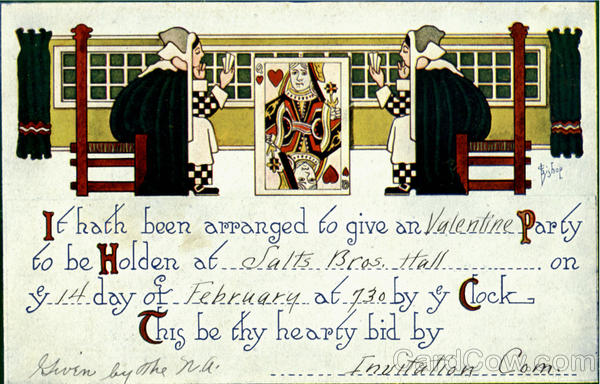 Q
Bishop
It hath been arranged to give an Valentine Party
to be Holden at Salts Bros. Hall on
ye 14 day of February at 7.30 by ye Clock
This be thy hearty bid by
Given by the N.A. Invitation Com.
CardCow.com